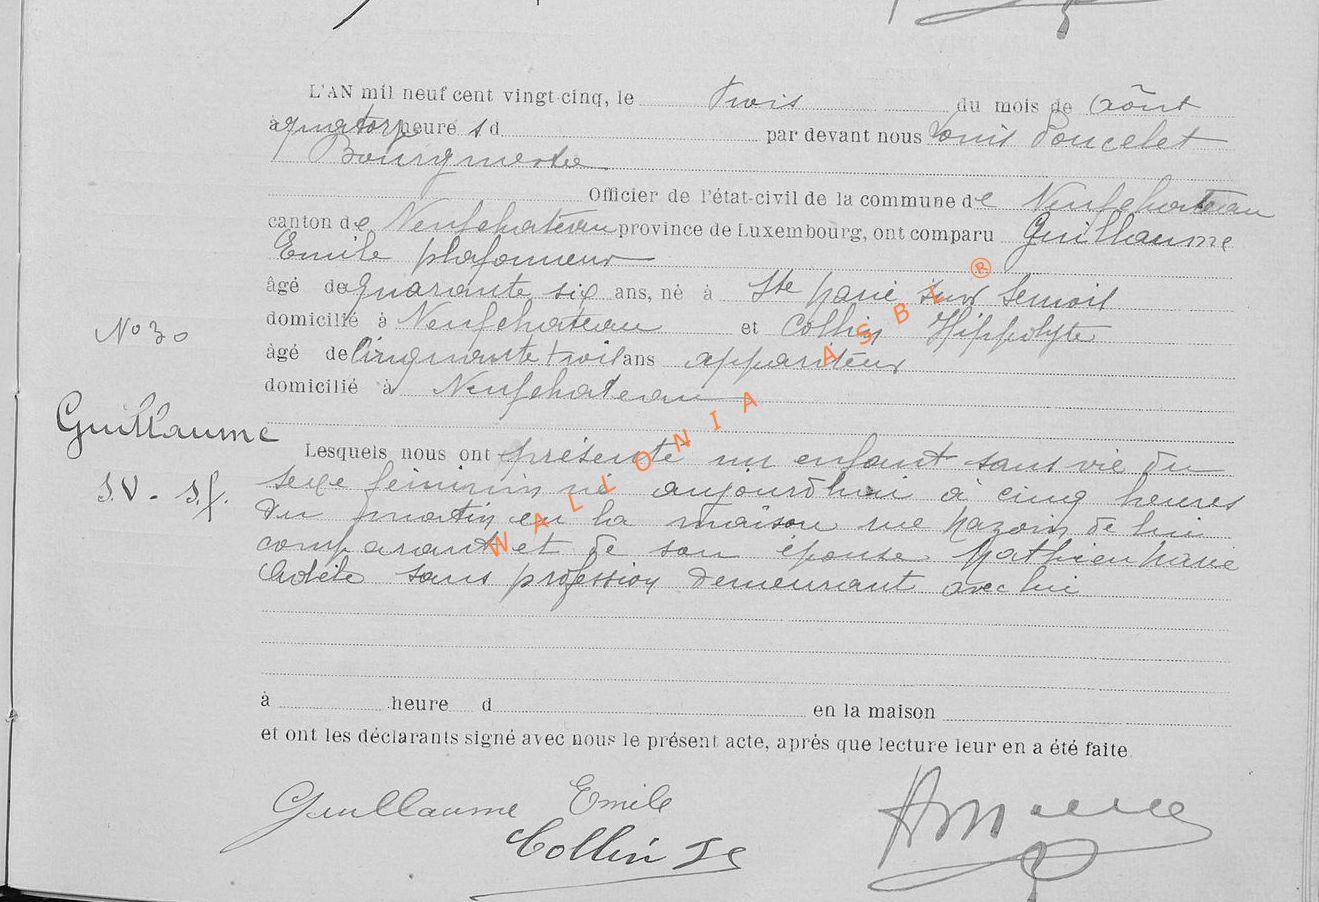 L'AN mil neuf cent vingt-cinq, le trois du mois de Août
à quatorze heure s d par devant nous Louis Poncelet
Bourgmestre
Officier de l'état-civil de la commune de Neufchateau
canton de Neufchateau province de Luxembourg, ont comparu Guillaume
Emile plafonneur
âgé de quarante six ans, né à Ste Marie sur Semois
N° 30
domicilié à Neufchateau et Collin Hippolyte
âgé de cinquante trois ans appariteur
domicilié à Neufchateau
Guillaume
Lesquels nous ont présenté un enfant sans vie du
S.V. - s.f.
sexe féminin né aujourd'hui à cinq heures
du matin en la maison rue de lui
comparant et de son épouse Mathieu Marie
Adèle sans profession demeurant avec lui
à heure d en la maison
et ont les déclarants signé avec nous le présent acte, après que lecture leur en a été faite.
Guillaume Emile
Collin
WALLONIA ASBL ®